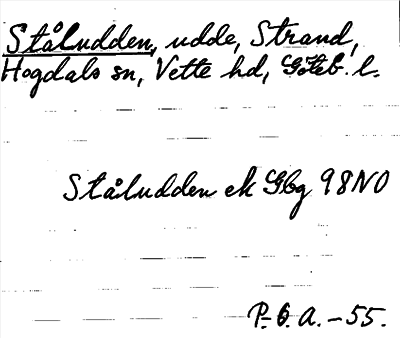 Ståludden, udde, Strand,
Hogdals sn, Vette hd, Göteb. l.
Ståludden ek Gbg 98NO
P.-O. A. -55.